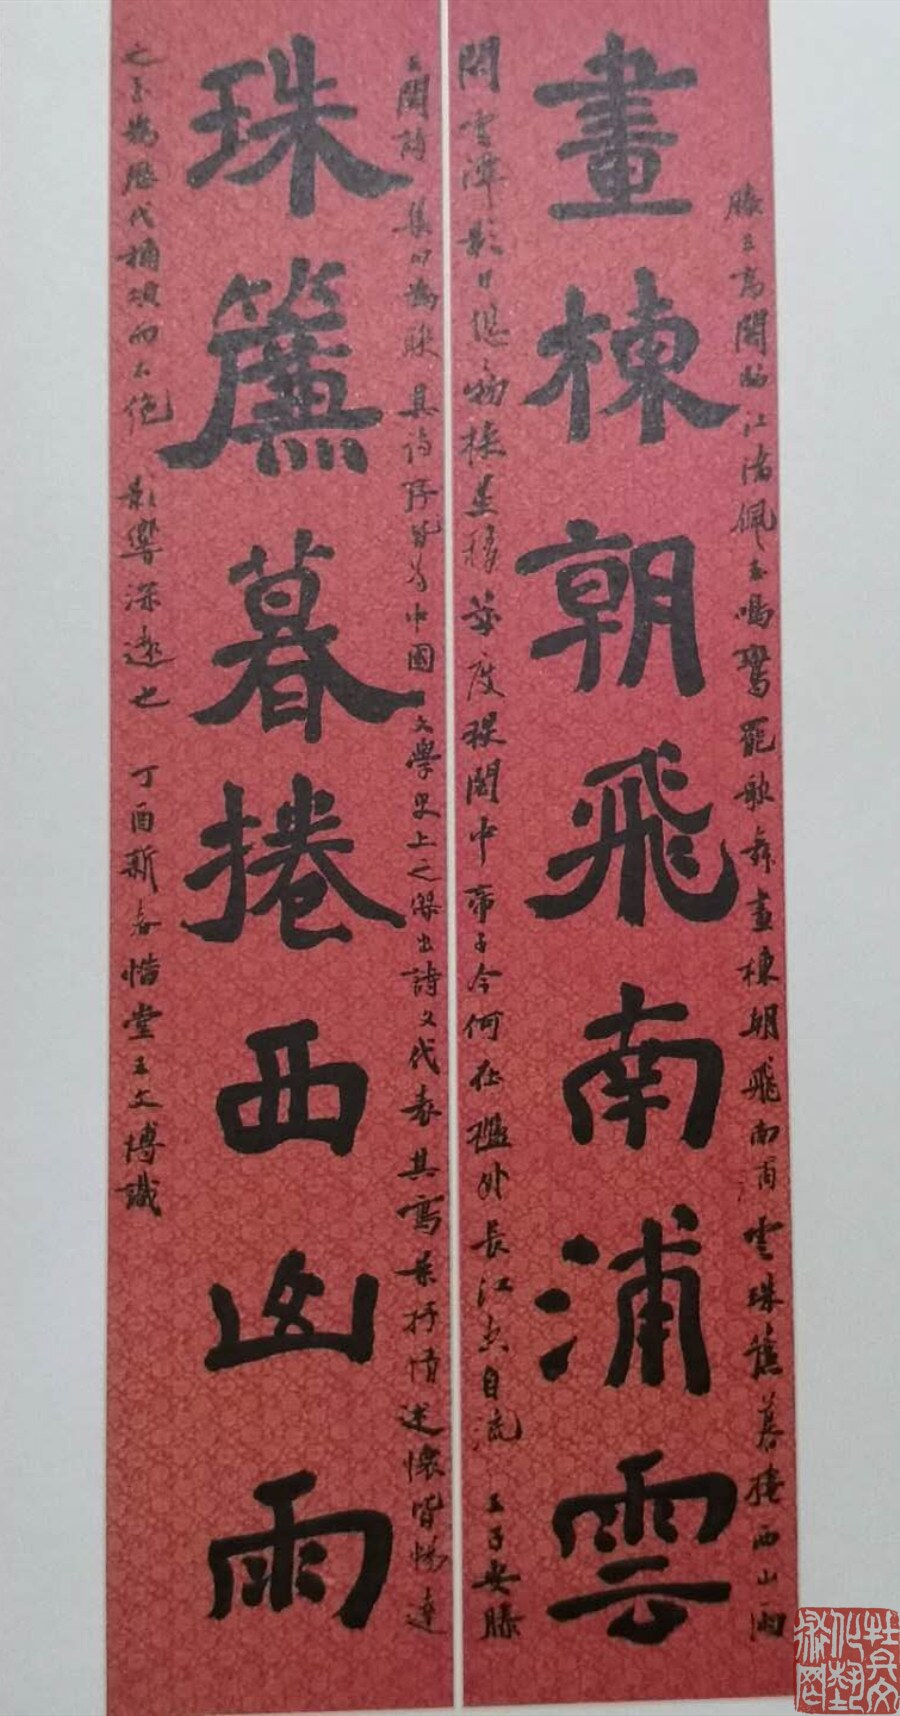 滕王高閣臨江渚佩玉鳴鸞罷歌舞畫棟朝飛南浦雲珠簾暮捲西山雨
畫棟朝飛南浦雲
閒雲潭影日悠悠物換星移幾度秋閣中帝子今何在檻外長江空自流 王子安滕
王閣詩 集以為聯 其詩序皆為中國文學史上之傑出詩文代表其寫景抒情述懷皆暢達
珠簾暮捲西山雨
之至為歷代稱頌而不絕 影響深遠也 丁酉新春惜堂王文博識